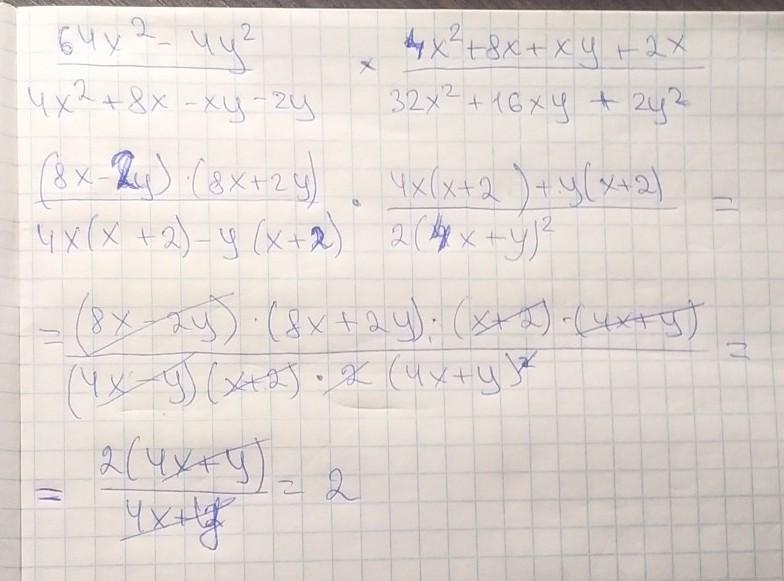 64x² - 4y² / 4x² + 8x - xy - 2y × 4x² + 8x + xy + 2x / 32x² + 16xy + 2y²
(8x - 2y) · (8x + 2y) / 4x(x + 2) - y(x + 2) · 4x(x + 2) + y(x + 2) / 2(4x + y)² =
= (8x - 2y) · (8x + 2y) · (x + 2) · (4x + y) / (4x - y)(x + 2) · 2(4x + y)² =
= 2(4x + y) / 4x + y = 2